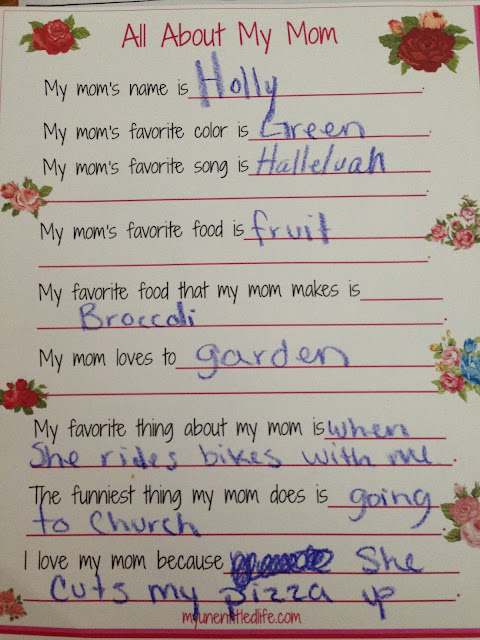 All About My Mom
My mom's name is Holly
My mom's favorite color is Green.
My mom's favorite song is Halleluah
.
My mom's favorite food is fruit
.
My favorite food that my mom makes is
Broccoli.
My mom loves to garden
.
My favorite thing about my mom is when
She rides bikes with me.
The funniest thing my mom does is going
to Church.
I love my mom because She
Cuts my pizza up.
myunentitledlife.com